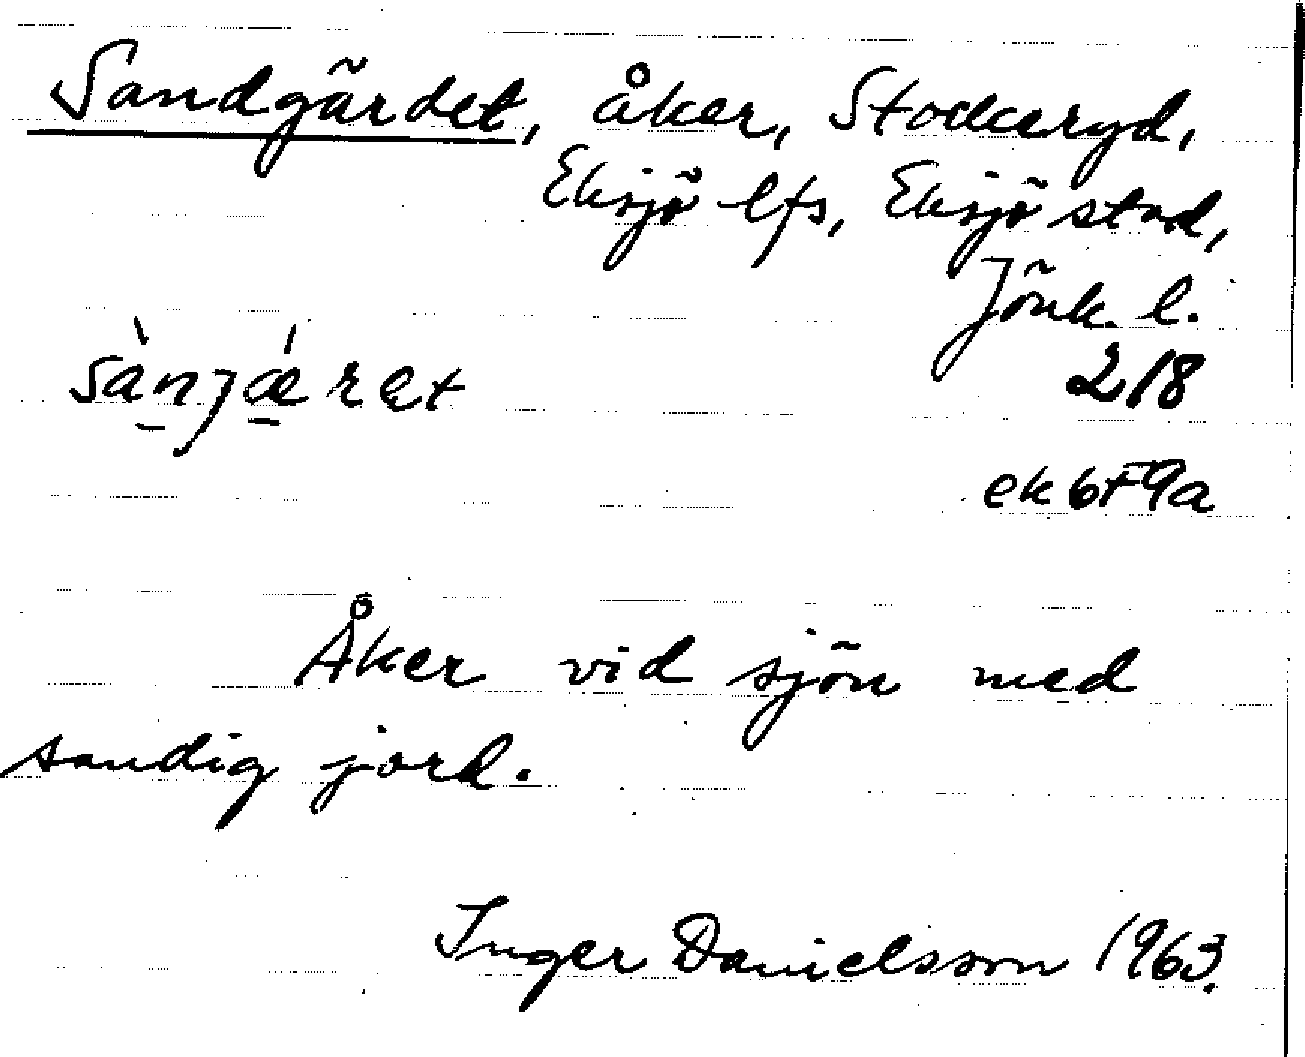 Sandgärdet, åker, Stockeryd,
Eksjö lfs, Eksjö stad,
Jönk. l.
sànjǽret
218
ek 6F9a
Åker vid sjön med
sandig jord.
Inger Danielsson 1963.